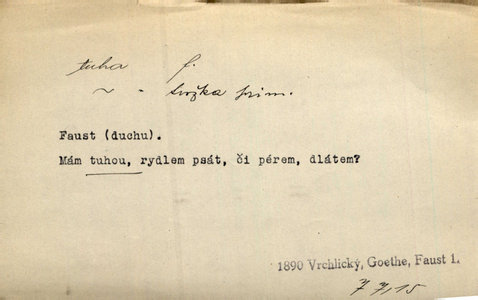 tuha f.
~ - tvožka
Faust (duchu).
Mám tuhou, rydlem psát, či pérem, dlátem?
1890 Vrchlický, Goethe, Faust 1.